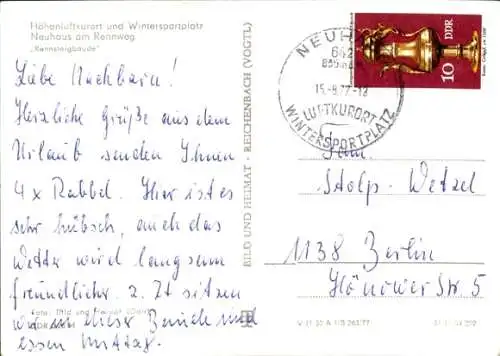 Höhenluftkurort und Wintersportplatz
Neuhaus am Rennweg
„Rennsteigbaude"
Liebe Nachbarn!
Herzliche Grüße aus dem
Urlaub senden Ihnen
4 x Rabbel. Hier ist es
sehr hübsch, auch das
Wetter wird langsam
freundlicher. Z. Zt sitzen
wir in dieser Baude und
essen Mittag.
BILD UND HEIMAT · REICHENBACH (VOGTL)
NEUH
642
15.-8.77-12
LUFTKURORT
WINTERSPORTPLATZ
DDR
10
Fam.
Stolp-Wetzel
1138 Berlin
Hönower Str. 5